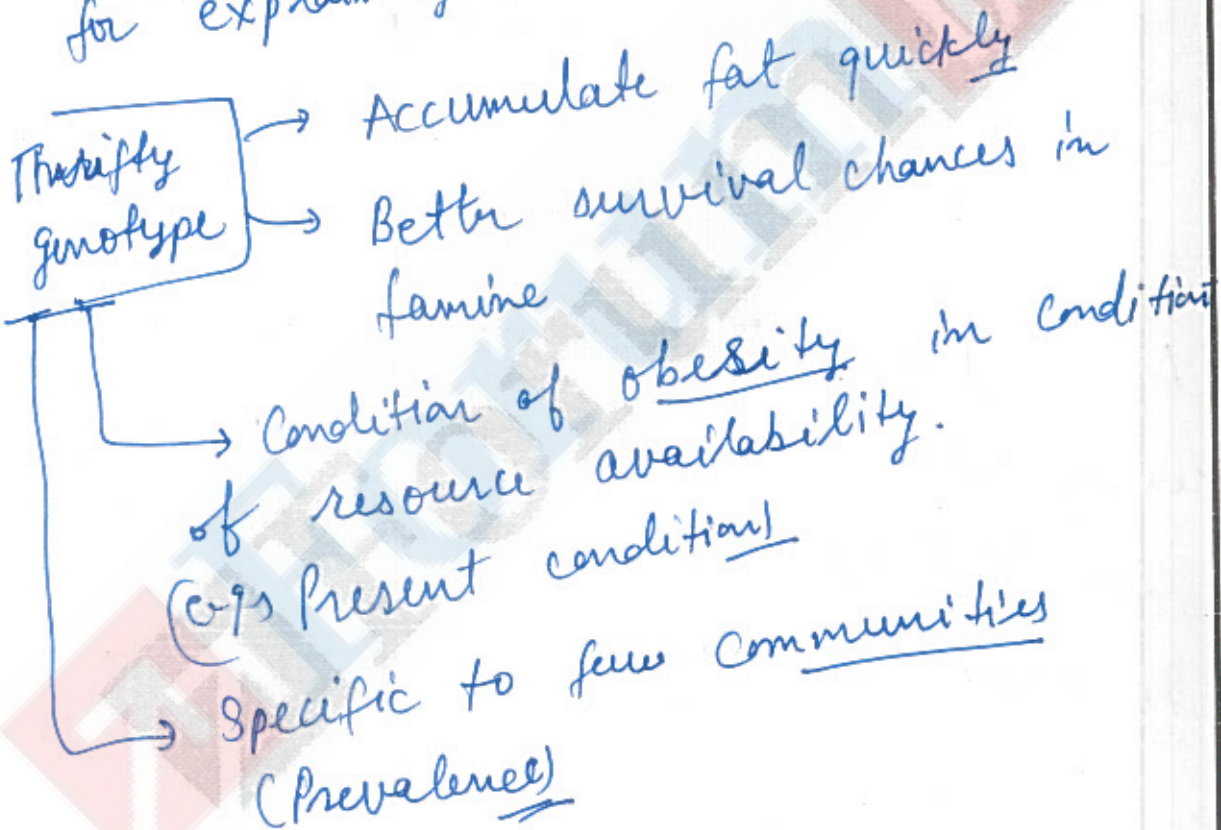 for
Thrifty
genotype
→ Accumulate fat quickly
→ Better survival chances in
famine
→ Condition of obesity in condition
of resource availability.
(e.g. Present condition)
→ Specific to few communities
(Prevalence)
Forum